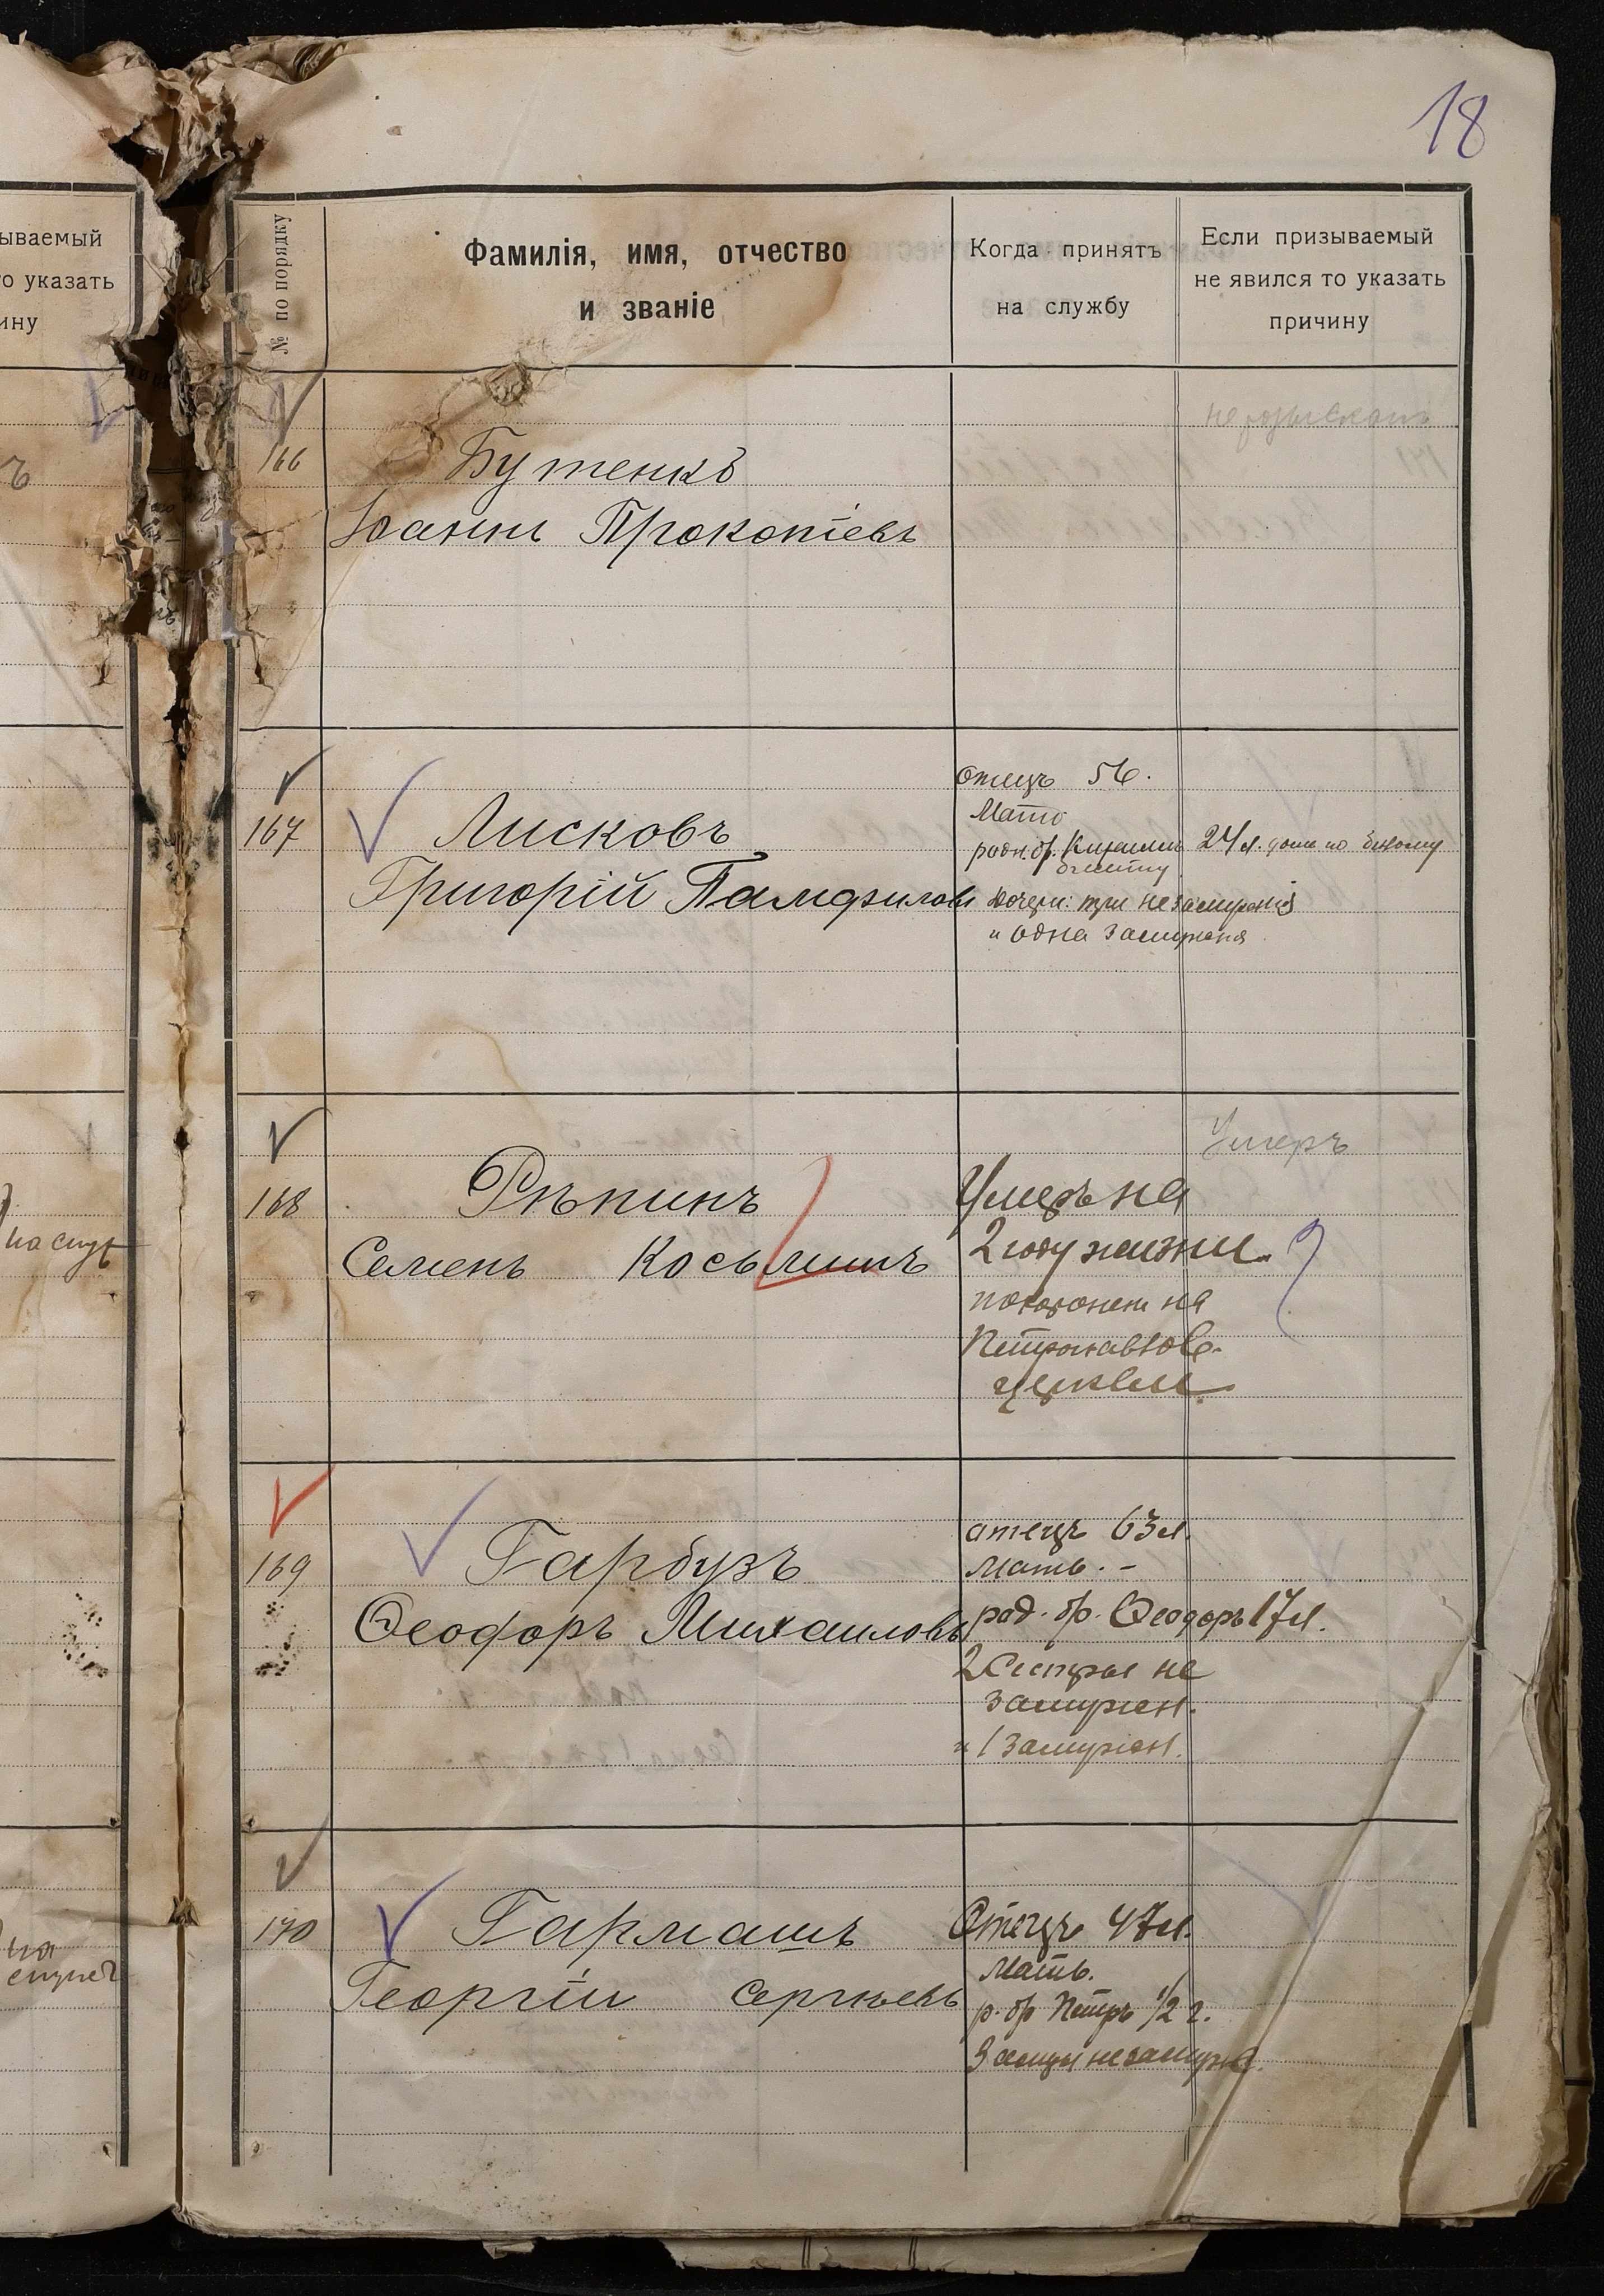 18
ываемый
о указать
ину
ъ
на служ
на
службе
№ по порядку
Фамилія, имя, отчество
и званіе
Когда принятъ
на службу
Если призываемый
не явился то указать
причину
166
Бутенкъ
Іоаннъ Прокопіевъ
167
Лисковъ
Григорій Памфиловъ
отецъ 56.
Мать
родн. бр. Кириллъ 24 л. дома по билету
Дочери: три незамужнія
и одна замужняя
Умеръ
168
Рѣпинъ
Семенъ Косьминъ
Умеръ на
2 году жизни
похороненъ на
Петропавлов.
церкви
169
Гарбузъ
Ѳеодоръ Михаиловъ
отецъ 63 л.
Мать. -
род. бр. Ѳеодоръ 17 л.
2 Сестры не
замужем.
и 1 замужем.
170
Гармашъ
Георгій Сергѣевъ
Отецъ 47 л.
Мать.
р. бр Петръ 1/2 г.
3 сестры незамужн.